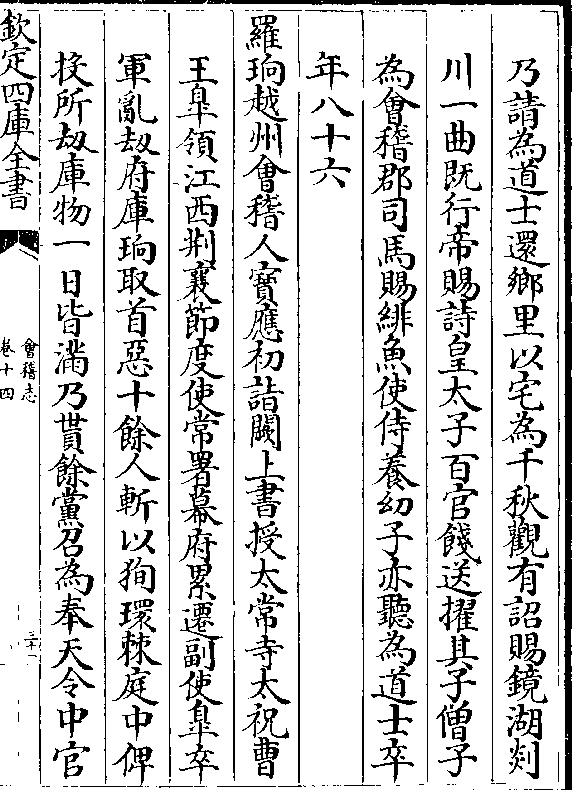 乃請為道士還鄉里以宅為千秋觀有詔賜鏡湖剡
川一曲既行帝賜詩皇太子百官餞送擢其子僧子
為會稽郡司馬賜緋魚使侍養幼子亦聽為道士卒
年八十六
羅珦越州會稽人寶應初詣闕上書授太常寺太祝曹
王臯領江西荆襄節度使常署幕府累遷副使臯卒
軍亂刼府庫珦取首惡十餘人斬以狥環棘庭中俾
投所刼庫物一日皆滿乃貰餘黨召為奉天令中官
欽定四庫全書
會稽志
卷十四